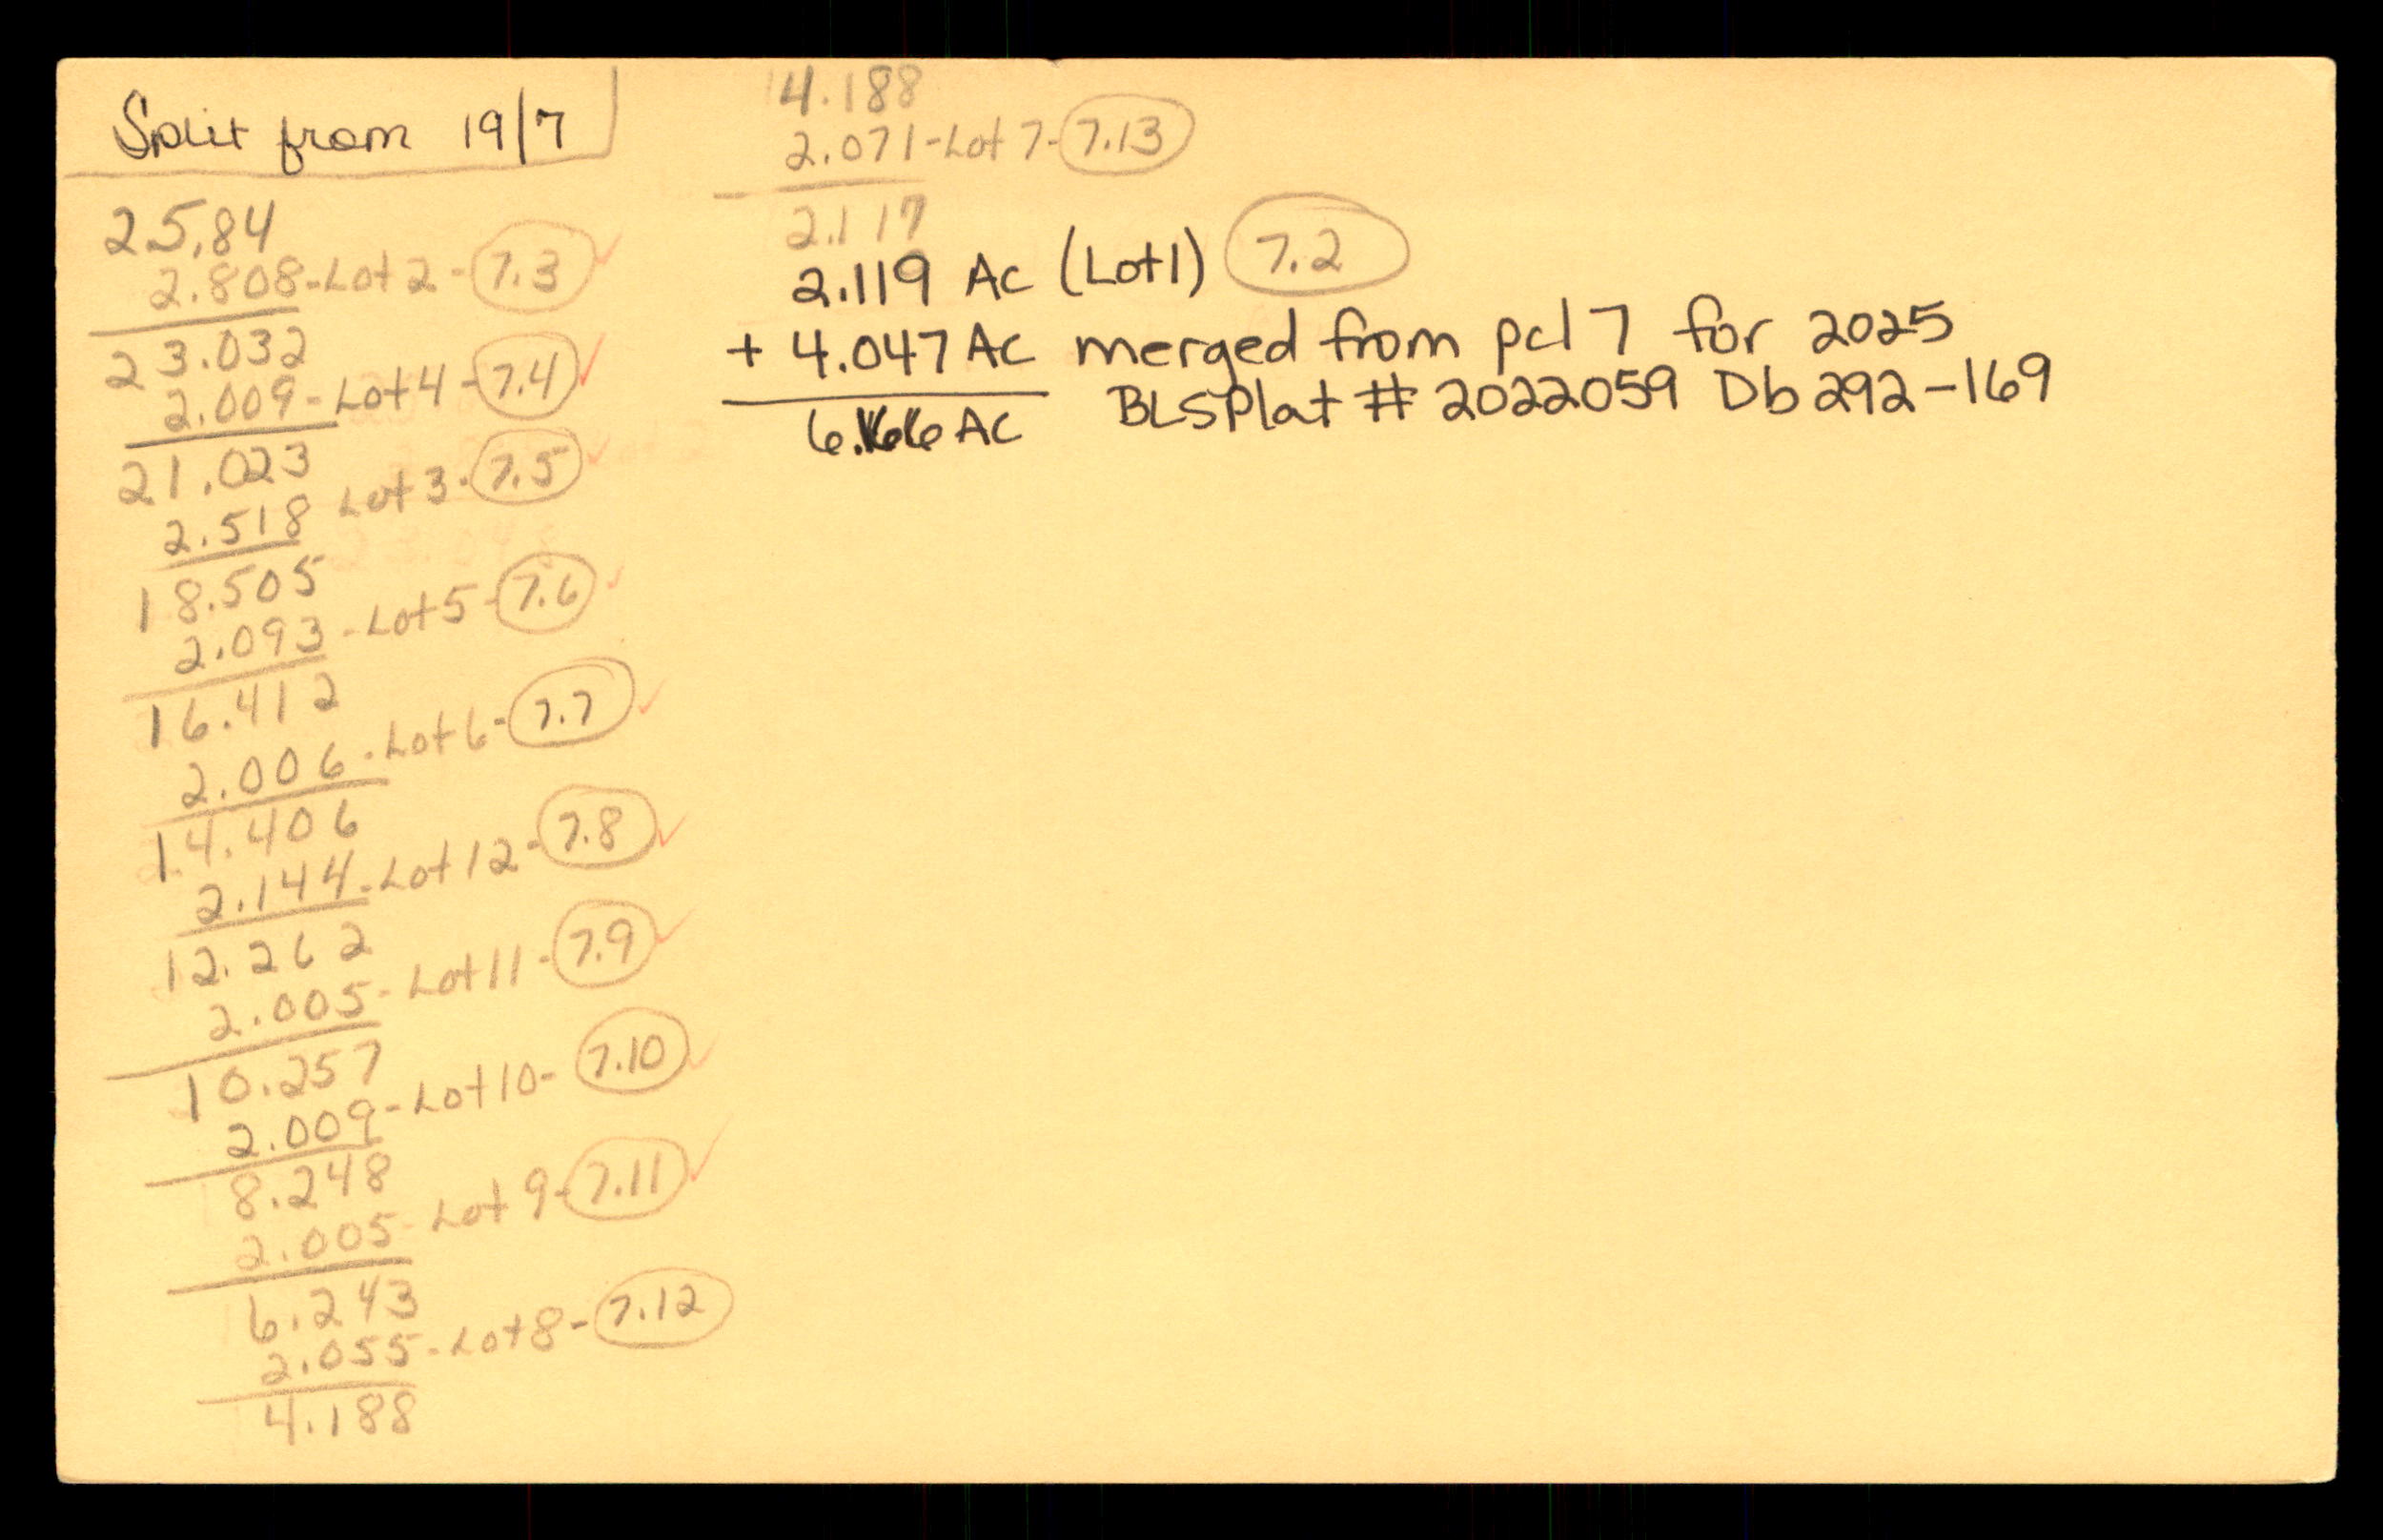 Split from 19/7
25.84
2.808-Lot 2-7.3✓
23.032
2.009-Lot 4-7.4✓
21.023
2.518 Lot 3-7.5✓
18.505
2.093-Lot 5-7.6✓
16.412
2.006-Lot 6-7.7✓
14.406
2.144-Lot 12-7.8✓
12.262
2.005-Lot 11-7.9✓
10.257
2.009-Lot 10-7.10✓
8.248
2.005-Lot 9-7.11✓
6.243
2.055-Lot 8-7.12
4.188
4.188
2.071-Lot 7-7.13
2.117
2.119 Ac (Lot 1) 7.2
+ 4.047 Ac merged from pcl 7 for 2025
6.166 Ac BLSPlat # 2022059 Db 292-169